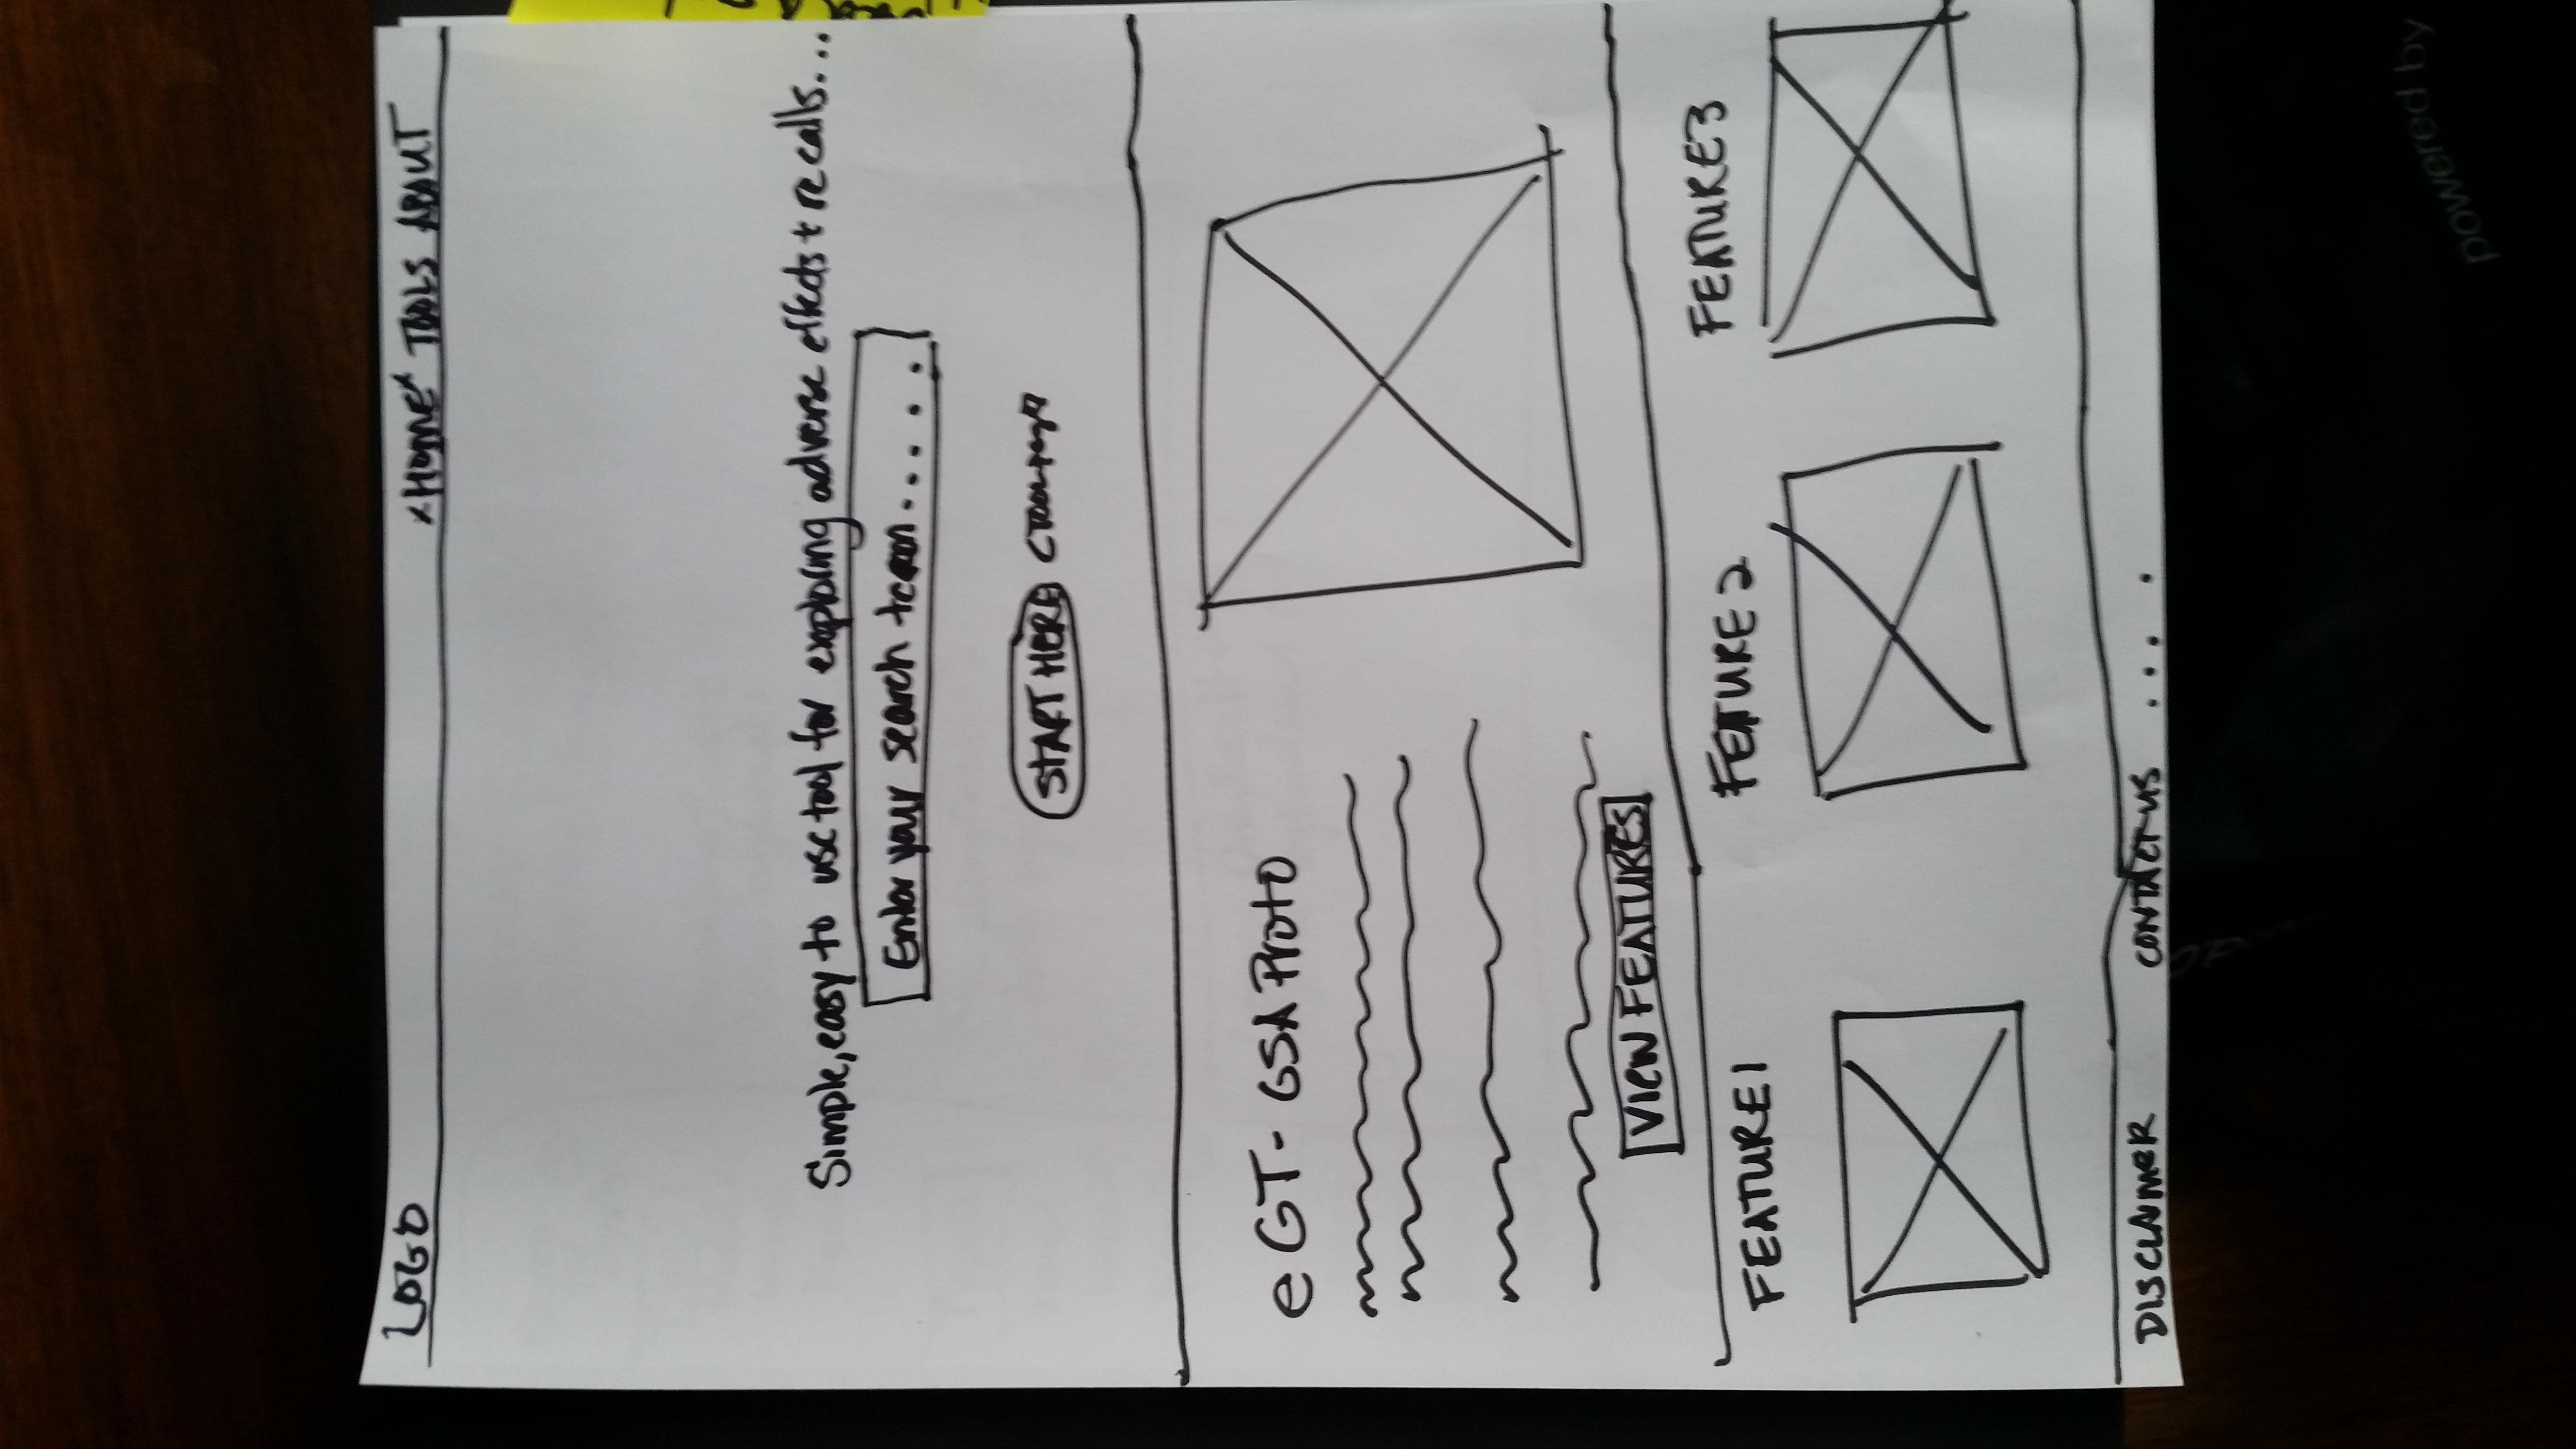 LOGO
HOME TOOLS ABOUT
Simple, easy to use tool for exploring adverse effects + recalls...
Enter your search term.....
START HERE
eGT- GSA Proto
VIEW FEATURES
FEATURE 1
FETURE 2
FEATURE 3
DISCLAIMER CONTACT US ....
powered by